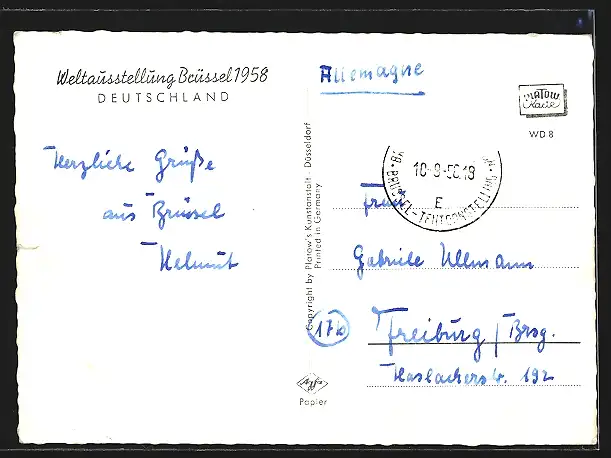 Weltausstellung Brüssel 1958
DEUTSCHLAND
Herzliche Grüße
aus Brüssel
Helmut
Copyright by Platow's Kunstanstalt - Düsseldorf
Printed in Germany
Allemagne
PLATOW
Karte
WD 8
10-9-58.18
E
BRUSSEL-TENTOONSTELLING
Frau
Gabriele Ullmann
(17b)
Freiburg / Brsg.
Haslacherstr. 192
Agfa
Papier